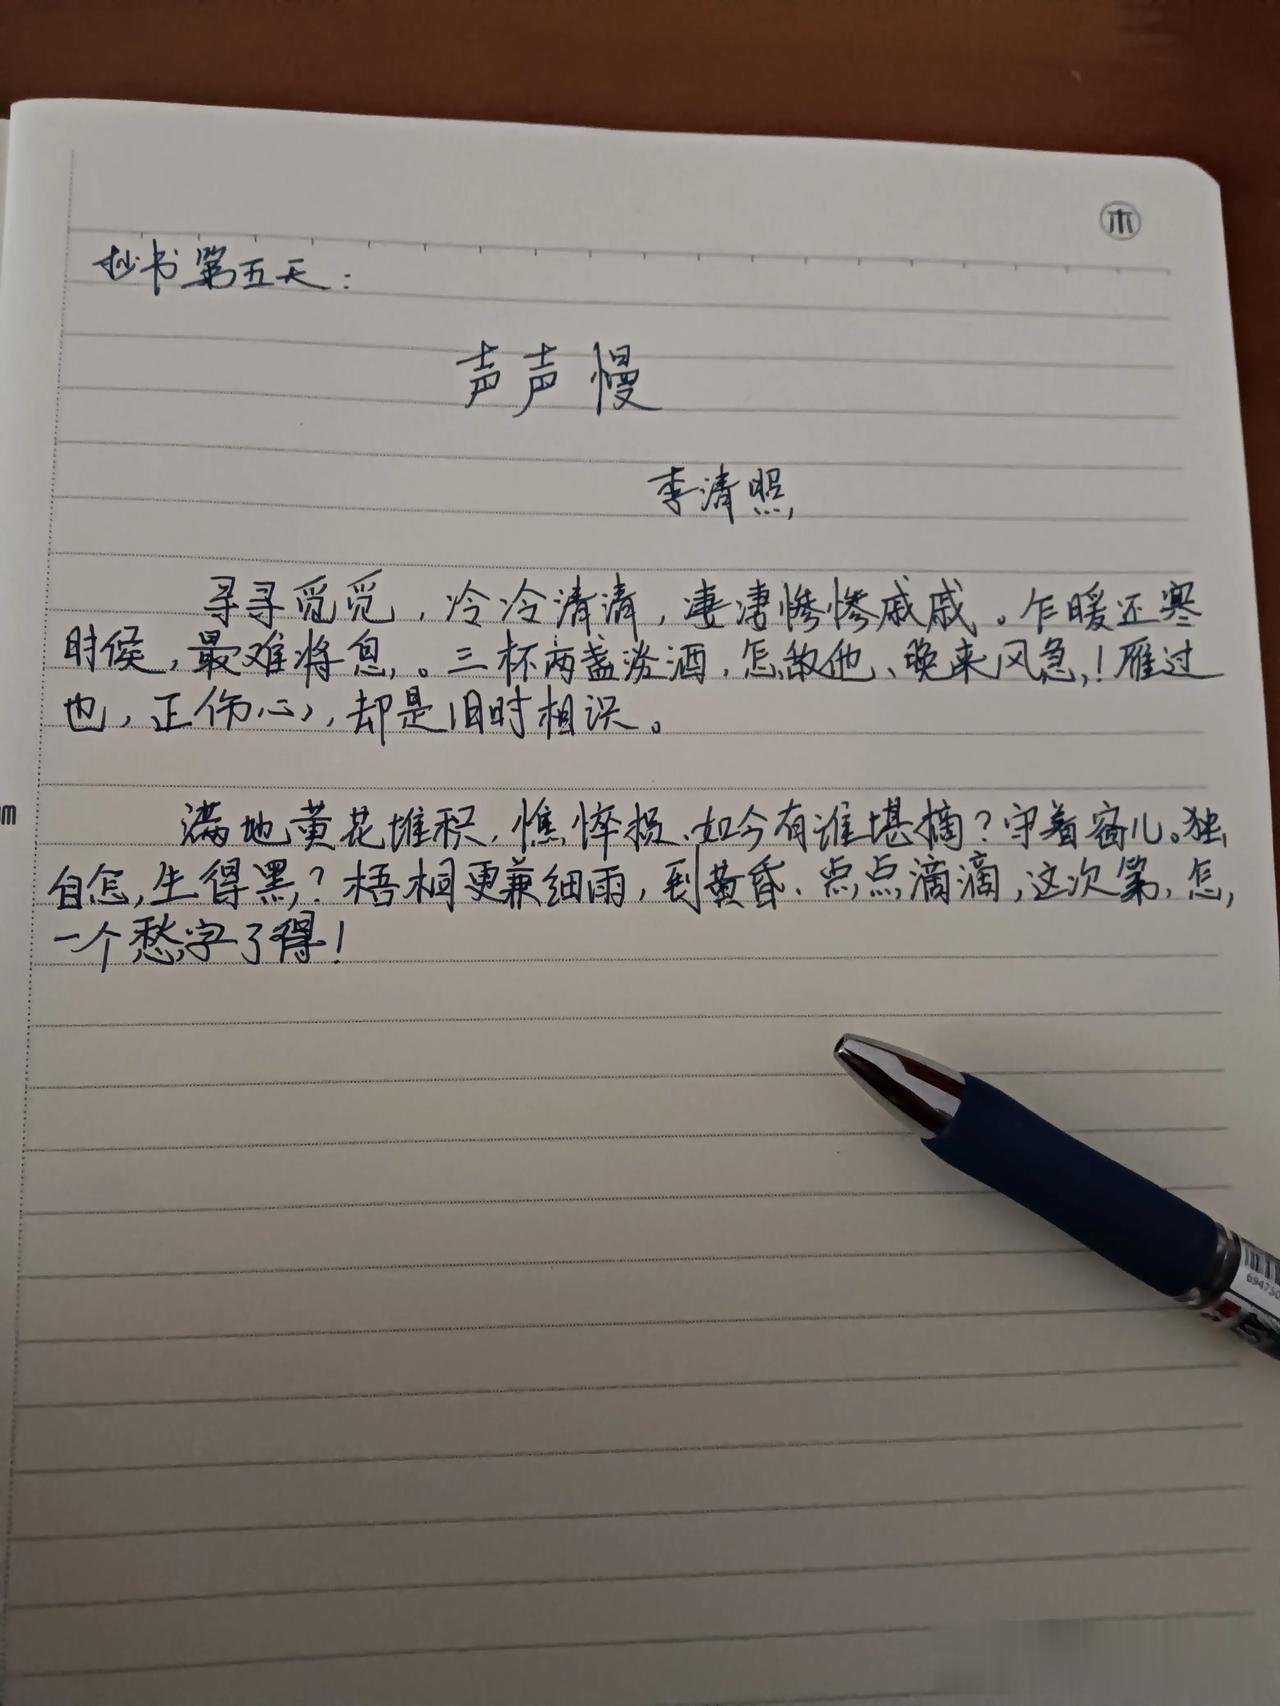 木
抄书第五天：
声声慢
李清照
寻寻觅觅，冷冷清清，凄凄惨惨戚戚。乍暖还寒
时候，最难将息。三杯两盏淡酒，怎敌他、晚来风急！雁过
也，正伤心，却是旧时相识。
满地黄花堆积，憔悴损，如今有谁堪摘？守着窗儿。独
自怎生得黑？梧桐更兼细雨，到黄昏、点点滴滴，这次第，怎
一个愁字了得！